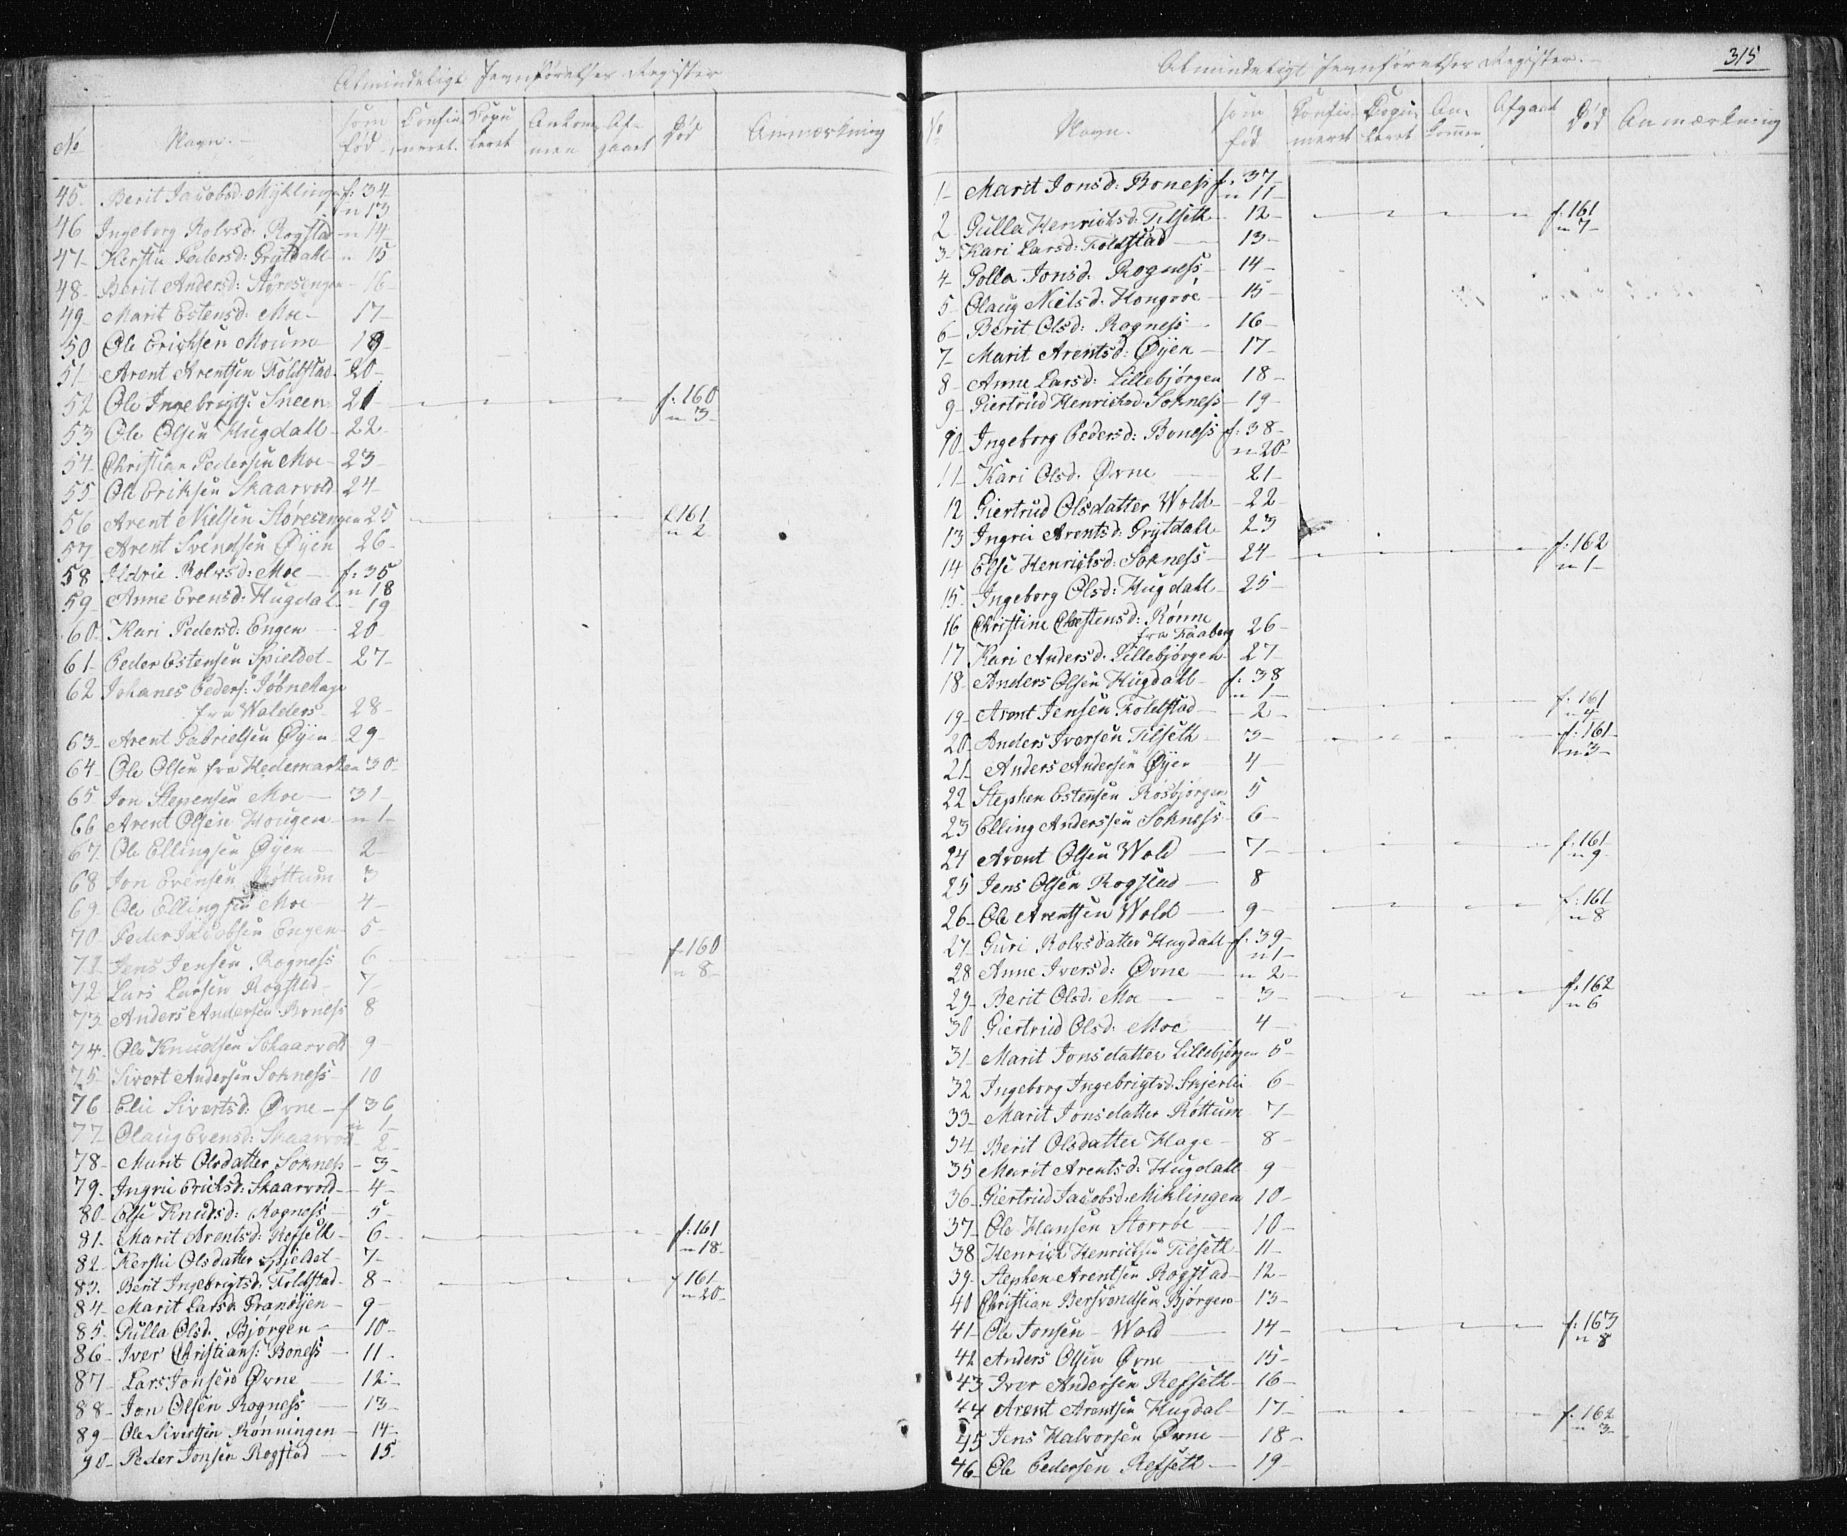 Almindeligt Jevnførelses Register
No Navn. som fød Confirmeret. Copuleret Ankommen Afgaaet Død Anmærkning
45. Berit Jacobsd: Myklingen f. 34 n 13
46 Ingeborg Rolvsd: Rogstad n 14
47- Kersti Pedersd: Grytdahl n 15
48- Berit Andersd: Støresengen 16-
49- Marit Estensd: Moe- 17-
50 Ole Ericksen Moum 18-
51- Arent Arentsen Foldstad 20-
52 Ole Ingebrigts: Sneen 21 f. 160 n 3-
53 Ole Olsen Hugdahl- 22-
54- Christian Pedersen Moe- 23-
55 Ole Eriksen Skaarvold 24-
56 Arent Nielsen Støresengen 25 f. 161 n 2
57- Arent Svendsen Øyen 26-
58 Ildrie Rolvsd: Moe- f. 35 n 18
59- Anne Evensd: Hugdal- 19
60- Kari Pedersd: Engen 20-
61- Peder Estensen Spieldet- 27-
62 Johanes Peders: Jøbnehage
fra Walders- 28-
63- Arent Gabrielsen Øyen 29-
64- Ole Olsen fra Hedemarken 30-
65 Jon Stepensen Moe- 31-
66 Arent Olsen Hougen- n 1-
67- Ole Ellingsen Øyen- 2-
68 Jon Evensen Røttum 3
69- Ole Ellingsen Moe- 4-
70 Peder Jacobsen Engen- 5-
71 Jens Jensen Rogness 6- f. 160 n 8-
72 Lars Larsen Rogstad- 7-
73- Anders Andersen Boness 8
74- Ole Knudsen Skaarvold 9-
75- Sivert Andersen Sokness- 10
76 Elie Sivertsd: Øvne- f 36 n 1-
77- Olaug Evensd: Skaarvold 2-
78- Marit Olsdatter Sokness- 3-
79- Ingrie Ericksd: Skaarvold- 4-
80- Else Knudsd: Rogness 5-
81- Marit Arentsd: Refseth- 6- f. 161 n 18-
82- Kersti Olsdatter Spieldet- 7-
83. Berit Ingebrigtsd: Foldstad- 8- f 161 n 20-
84- Marit Larsd: Granøyen- 9-
85- Gulla Olsd. Bjørgen- 10-
86- Iver Christians: Boness 11-
87- Lars Jonsen Øvne 12-
88- Jon Olsen Rogness 13-
89- Ole Sivertsen Rønningen- 14-
90- Peder Jonsen Rogstad 15-
315
Almindeligt Jevnførelses Register.
No Navn. som fød Confirmeret Copuleret Ankommen Afgaaet Død Anmærkning
1- Marit Jonsd: Boness f. 37- n 11-
2- Gulla Henricksd: Tilseth- 12- f. 161 n 7-
3- Kari Larsd: Foldstad 13-
4- Golla Jonsd: Rogness- 14-
5 Olaug Nielsd. Hongroe- 15-
6- Berit Olsd: Rogness 16-
7- Marit Arentsd: Øyen- 17-
8- Anne Larsd: Lillebjørgen 18-
9- Giertrud Henricksd: Sokness 19-
10- Ingeborg Pedersd: Boness f. 38- n 20-
11- Kari Olsd. Øvne 21-
12 Giertrud Olsdatter Wold- 22
13 Ingrie Arentsd: Grytdahl- 23
14 Else Henricksd: Sokness- 24- f. 162 n 1-
15- Ingeborg Olsd: Hugdahl- 25-
16 Christine Chestensd: Rønne
fra Faaberg 26-
17 Kari Andersd. Lillebjørgen- 27-
18- Anders Olsen Hugdahl- f. 38 n 1-
19- Arent Jensen Foldstad- 2- f. 161 n 4
20- Anders Iversen Tilseth- 3- f. 161- n 3-
21- Anders Andersen Øyen 4-
22 Stephen Estensen Rosbjørgen 5
23 Elling Anderssen Sokness- 6-
24 Arent Olsen Wold 7- f. 161 n 9
25 Jens Olsen Rogstad 8
26- Ole Arentsen Wold 9- f. 161 n 8
27- Guri Rolvsdatter Hugdahl- f. 39- n 1-
28 Anne Iversd: Øvne n 2-
29- Berit Olsd: Moe- 3- f. 162 n 6
30 Giertrud Olsd: Moe 4-
31- Marit Jonsdatter Lillebjørgen 5-
32 Ingeborg Ingebrigtsd. Skjerlie 6-
33- Marit Jonsdatter Røttum 7-
34- Berit Olsdatter Hage- 8-
35 Marit Arentsd: Hugdahl 9-
36- Giertrud Jacobsd: Miklingen 10-
37- Ole Hansen Storrøe 10-
38 Henrick Henricksen Tilseth- 11-
39- Stephen Arentsen Rogstad- 12-
40 Christian Bersvendsen Bjørgen- 13-
41- Ole Jonsen- Wold 14- f. 163 n 8
42 Anders Olsen Øvne 15-
43 Iver Andersen Refseth- 16-
44 Arent Arentsen Hugdal- 17- f. 162 n 3-
45 Jens Halvorsen Øvne- 18-
46- Ole Pedersen Refseth- 19-